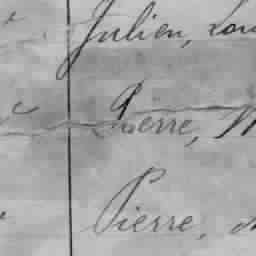 Julien, Lou
Pierre, M
Pierre,